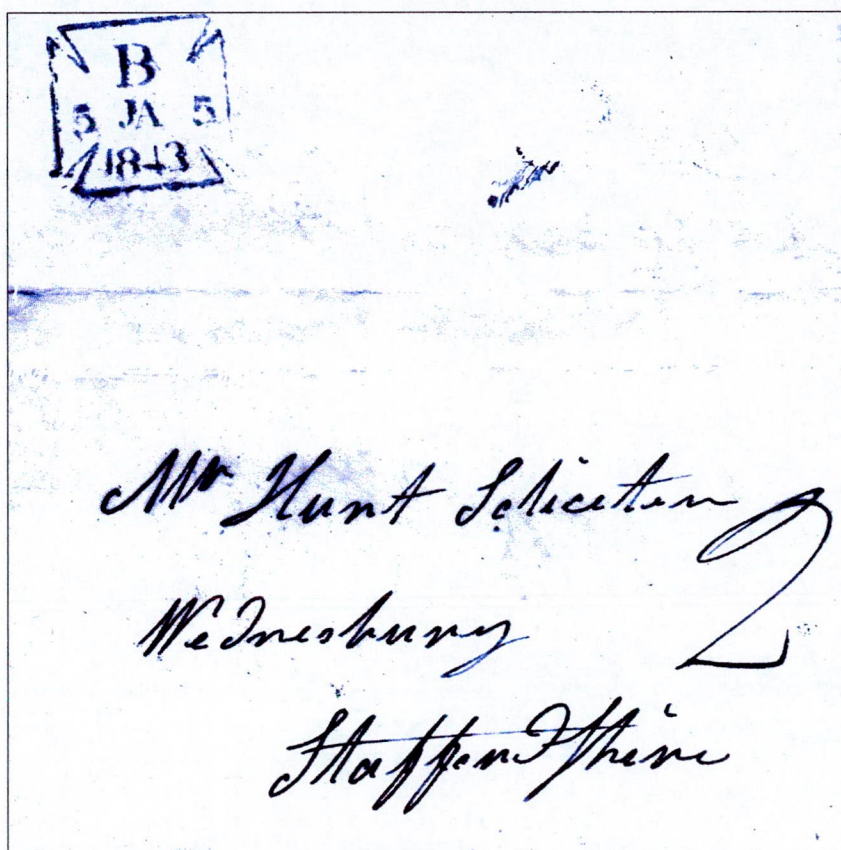 B
5 JA 5
1843
Mr Hunt Solicitor
Wednesbury
2
Staffordshire